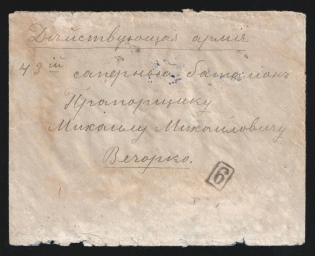 Дѣйствующая армія
43 ій саперный баталіонъ
Прапорщику
Михаилу Михайловичу
Вечорко.
6